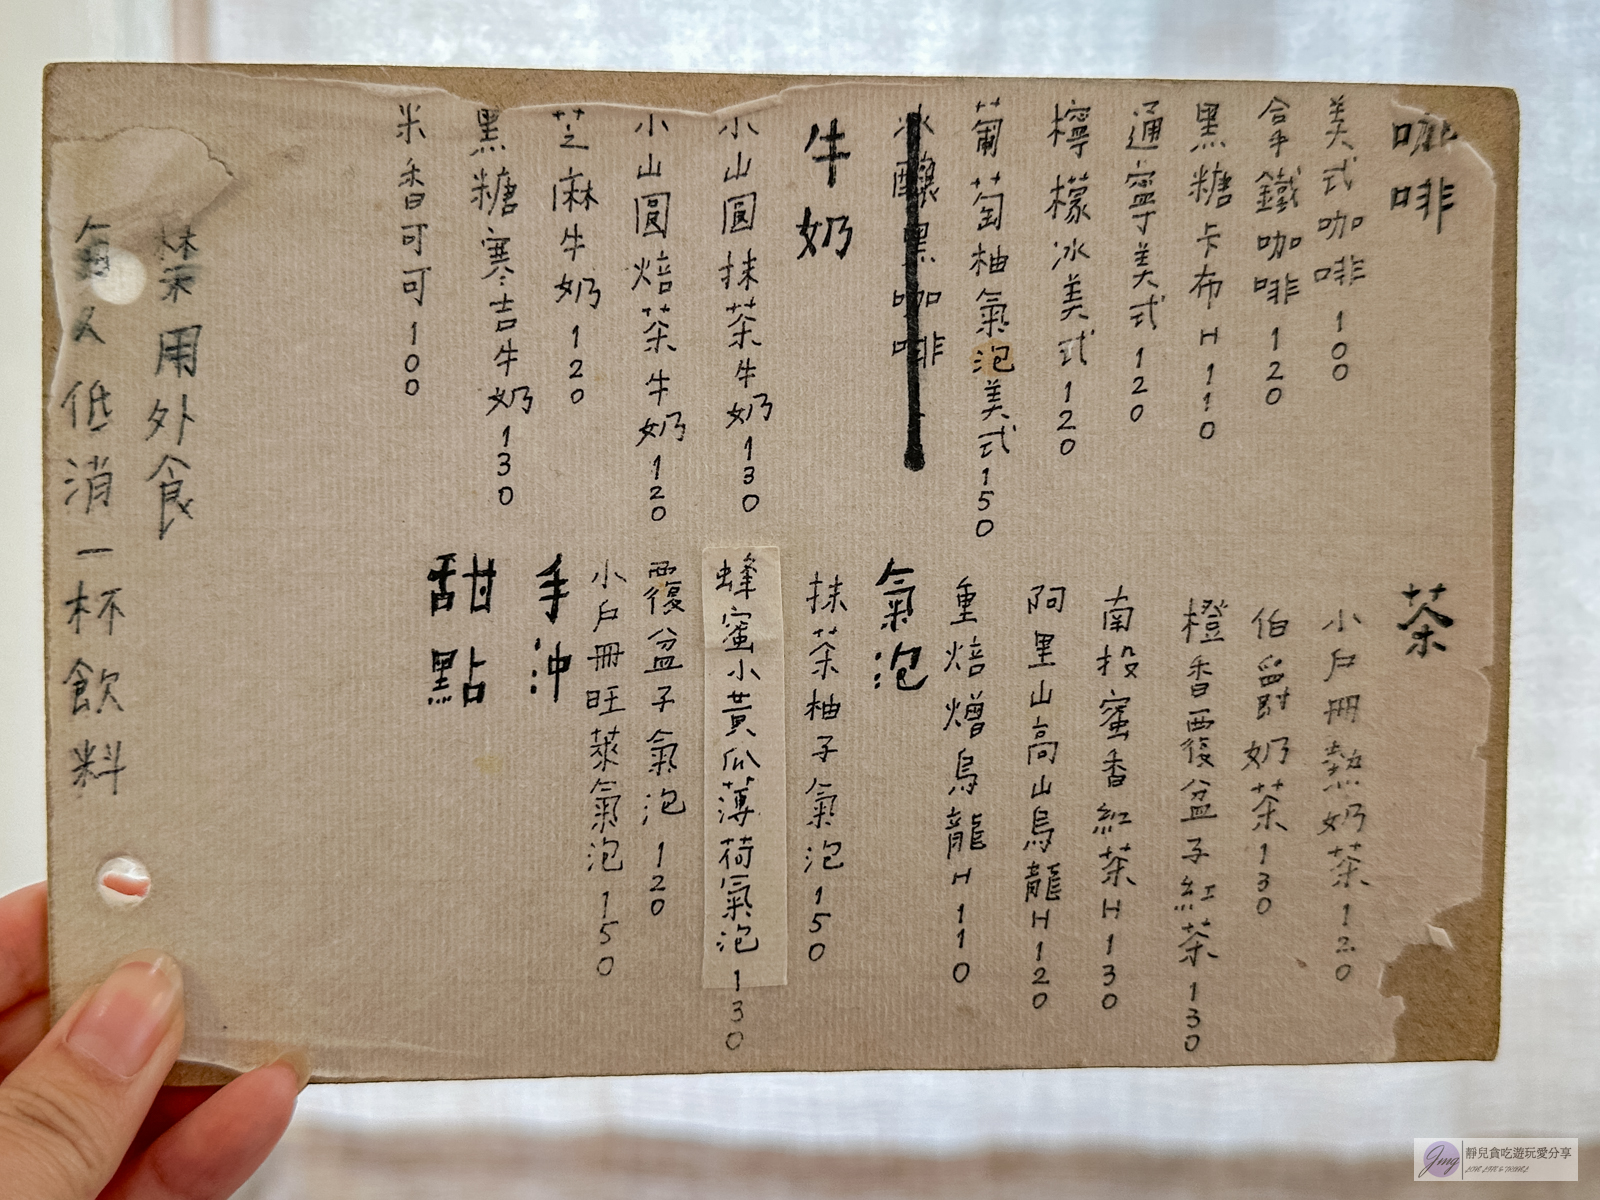 咖啡
美式咖啡100
拿鐵咖啡120
黑糖卡布H110
通寧美式120
檸檬冰美式120
葡萄柚氣泡美式150
冰釀黑咖啡
牛奶
小山圓抹茶牛奶130
小山圓焙茶牛奶120
芝麻牛奶120
黑糖寒吉牛奶130
米香可可100
茶
小戶冊熱奶茶120
伯爵奶茶130
橙香覆盆子紅茶130
南投蜜香紅茶H130
阿里山高山烏龍H120
重焙熷烏龍H110
氣泡
抹茶柚子氣泡150
蜂蜜小黃瓜薄荷氣泡130
覆盆子氣泡120
小戶冊旺萊氣泡150
手沖
甜點
禁用外食
每人低消一杯飲料
Jmg
靜兒貪吃遊玩愛分享